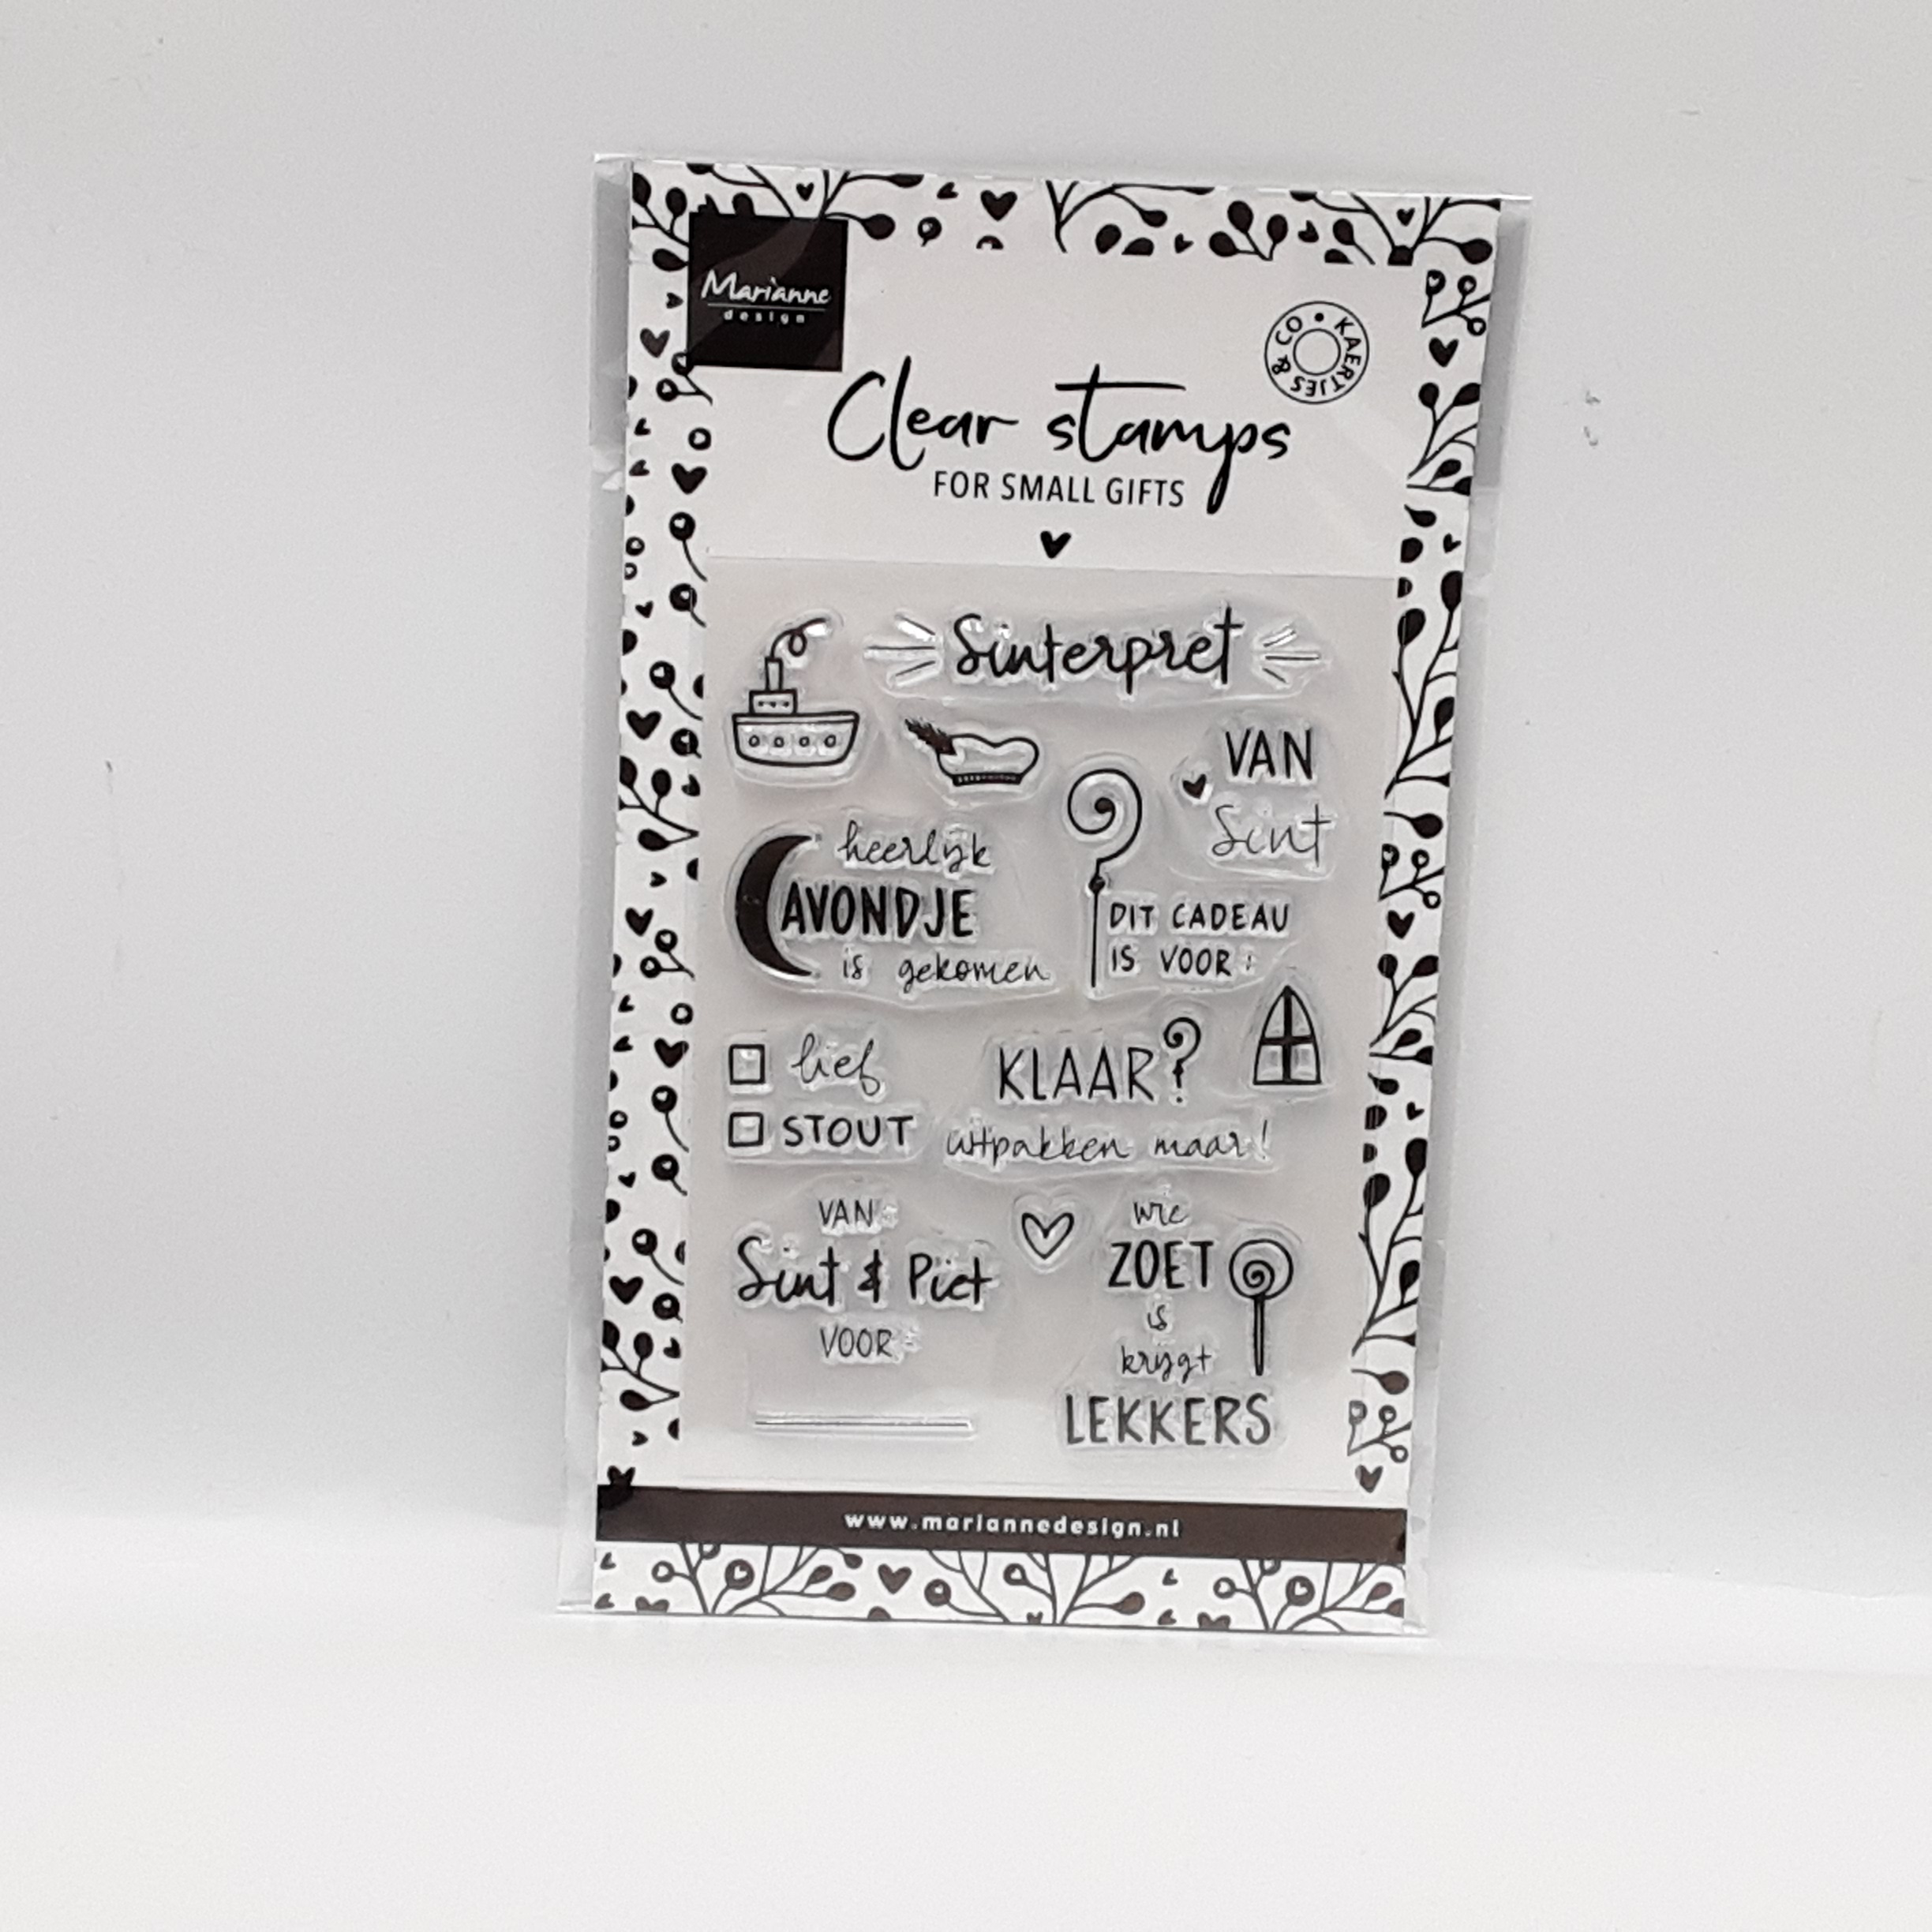 Marianne
design
KAERTJES & CO
Clear stamps
FOR SMALL GIFTS
Sinterpret
VAN
Sint
heerlijk
AVONDJE
is gekomen
DIT CADEAU
IS VOOR:
lief
STOUT
KLAAR?
uitpakken maar!
VAN
Sint & Piet
VOOR
wie
ZOET
is
krijgt
LEKKERS
www.mariannedesign.nl